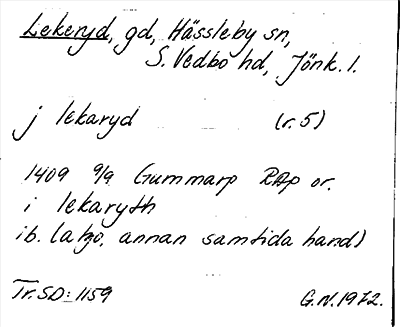 Lekeryd, gd, Hässleby sn,
S. Vedbo hd, Jönk. l.
j lekaryd (r. 5)
1409 9/9 Gummarp RAp or.
i lekaryth
ib. (a tgo. annan samtida hand)
Tr. SD: 1159 G.N. 1972.